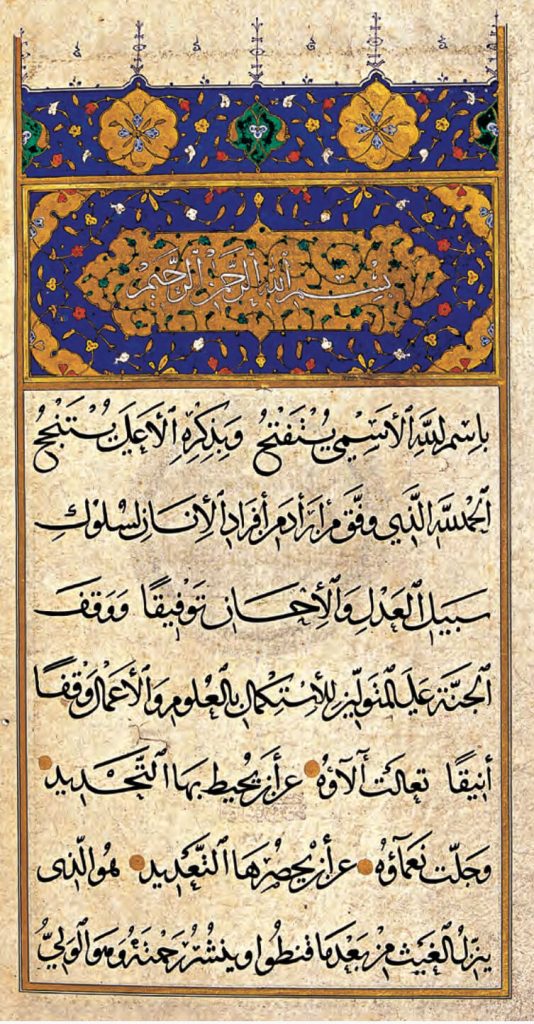 بسم الله الرحمن الرحيم
باسم الله الأسمى يستفتح وبذكره الأعلى يستنجح
الحمد لله الذي وفق من أراد من أفراد الإنسان لسلوك
سبيل العدل والإحسان توفيقا ووقف
الجنة على المتولين للاستكمال بالعلوم والأعمال وقفا
أنيقا تعالت آلاؤه عن أن يحيط بها التحديد
وجلت نعمآؤه عن أن يحصرها التعديد هو الذي
ينزل الغيث من بعد ما قنطوا وينشر رحمته وهو الولي